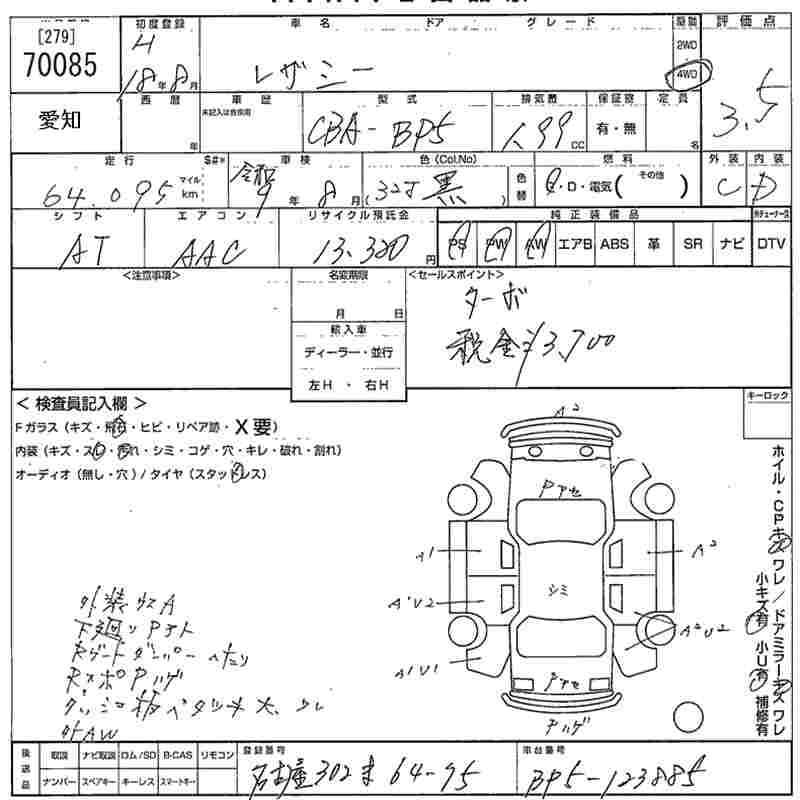 [279]
70085
初度登録 車名 ドア グレード 駆動 評価点
H
18年8月 レガシー 2WD 4WD 3.5
愛知 西暦 年 車歴 未記入は自家用 型式 CBA-BP5 排気量 1.99 CC 保証書 有・無 定員 名
走行 64.095 マイル km S#* 車検 令和9年8月 色(Col.No) (32J 黒) 色替 燃料 G・D・電気( その他 ) 外装 C 内装 D
シフト AT エアコン AAC リサイクル預託金 13.320円 純正装備品 PS PW AW エアB ABS 革 SR ナビ DTV
<注意事項> 名変期限 <セールスポイント>
月 日 ターボ
輸入車 税金¥3,700
ディーラー・並行
左H・右H
<検査員記入欄> キーロック
Fガラス(キズ・飛石・ヒビ・リペア跡・X要)
内装(キズ・スレ・汚れ・シミ・コゲ・穴・キレ・破れ・割れ)
オーディオ(無し・穴)/タイヤ(スタッドレス)
A2
Pアセ
A1 A2
シミ
A'U2 A2U2
A'U1
Pアセ
Pハゲ
ホイル・CPキズワレ/ドアミラーキズワレ
小キズ有 小U有 補修有
外装ウスA
下廻り
Rゲートダンパーへたり
RスポPハゲ
外AW
後送品 取説 ナビ取説 ロム/SD B-CAS リモコン 登録番号 車台番号
ナンバー スペアキー キーレス スマートキー 名古屋302 64-75 BP5-123885